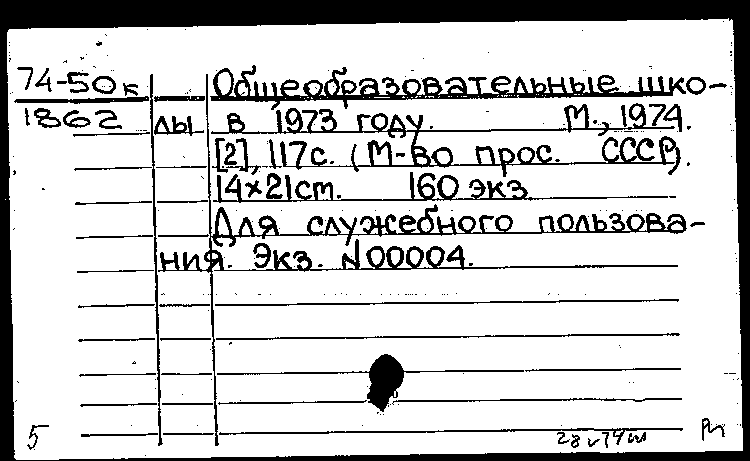 74-50к Общеобразовательные шко-
1862 лы в 1973 году. М., 1974.
[2], 117с. (М-во прос. СССР).
14×21см. 160 экз
Для служебного пользова-
ния. Экз. N00004.
5